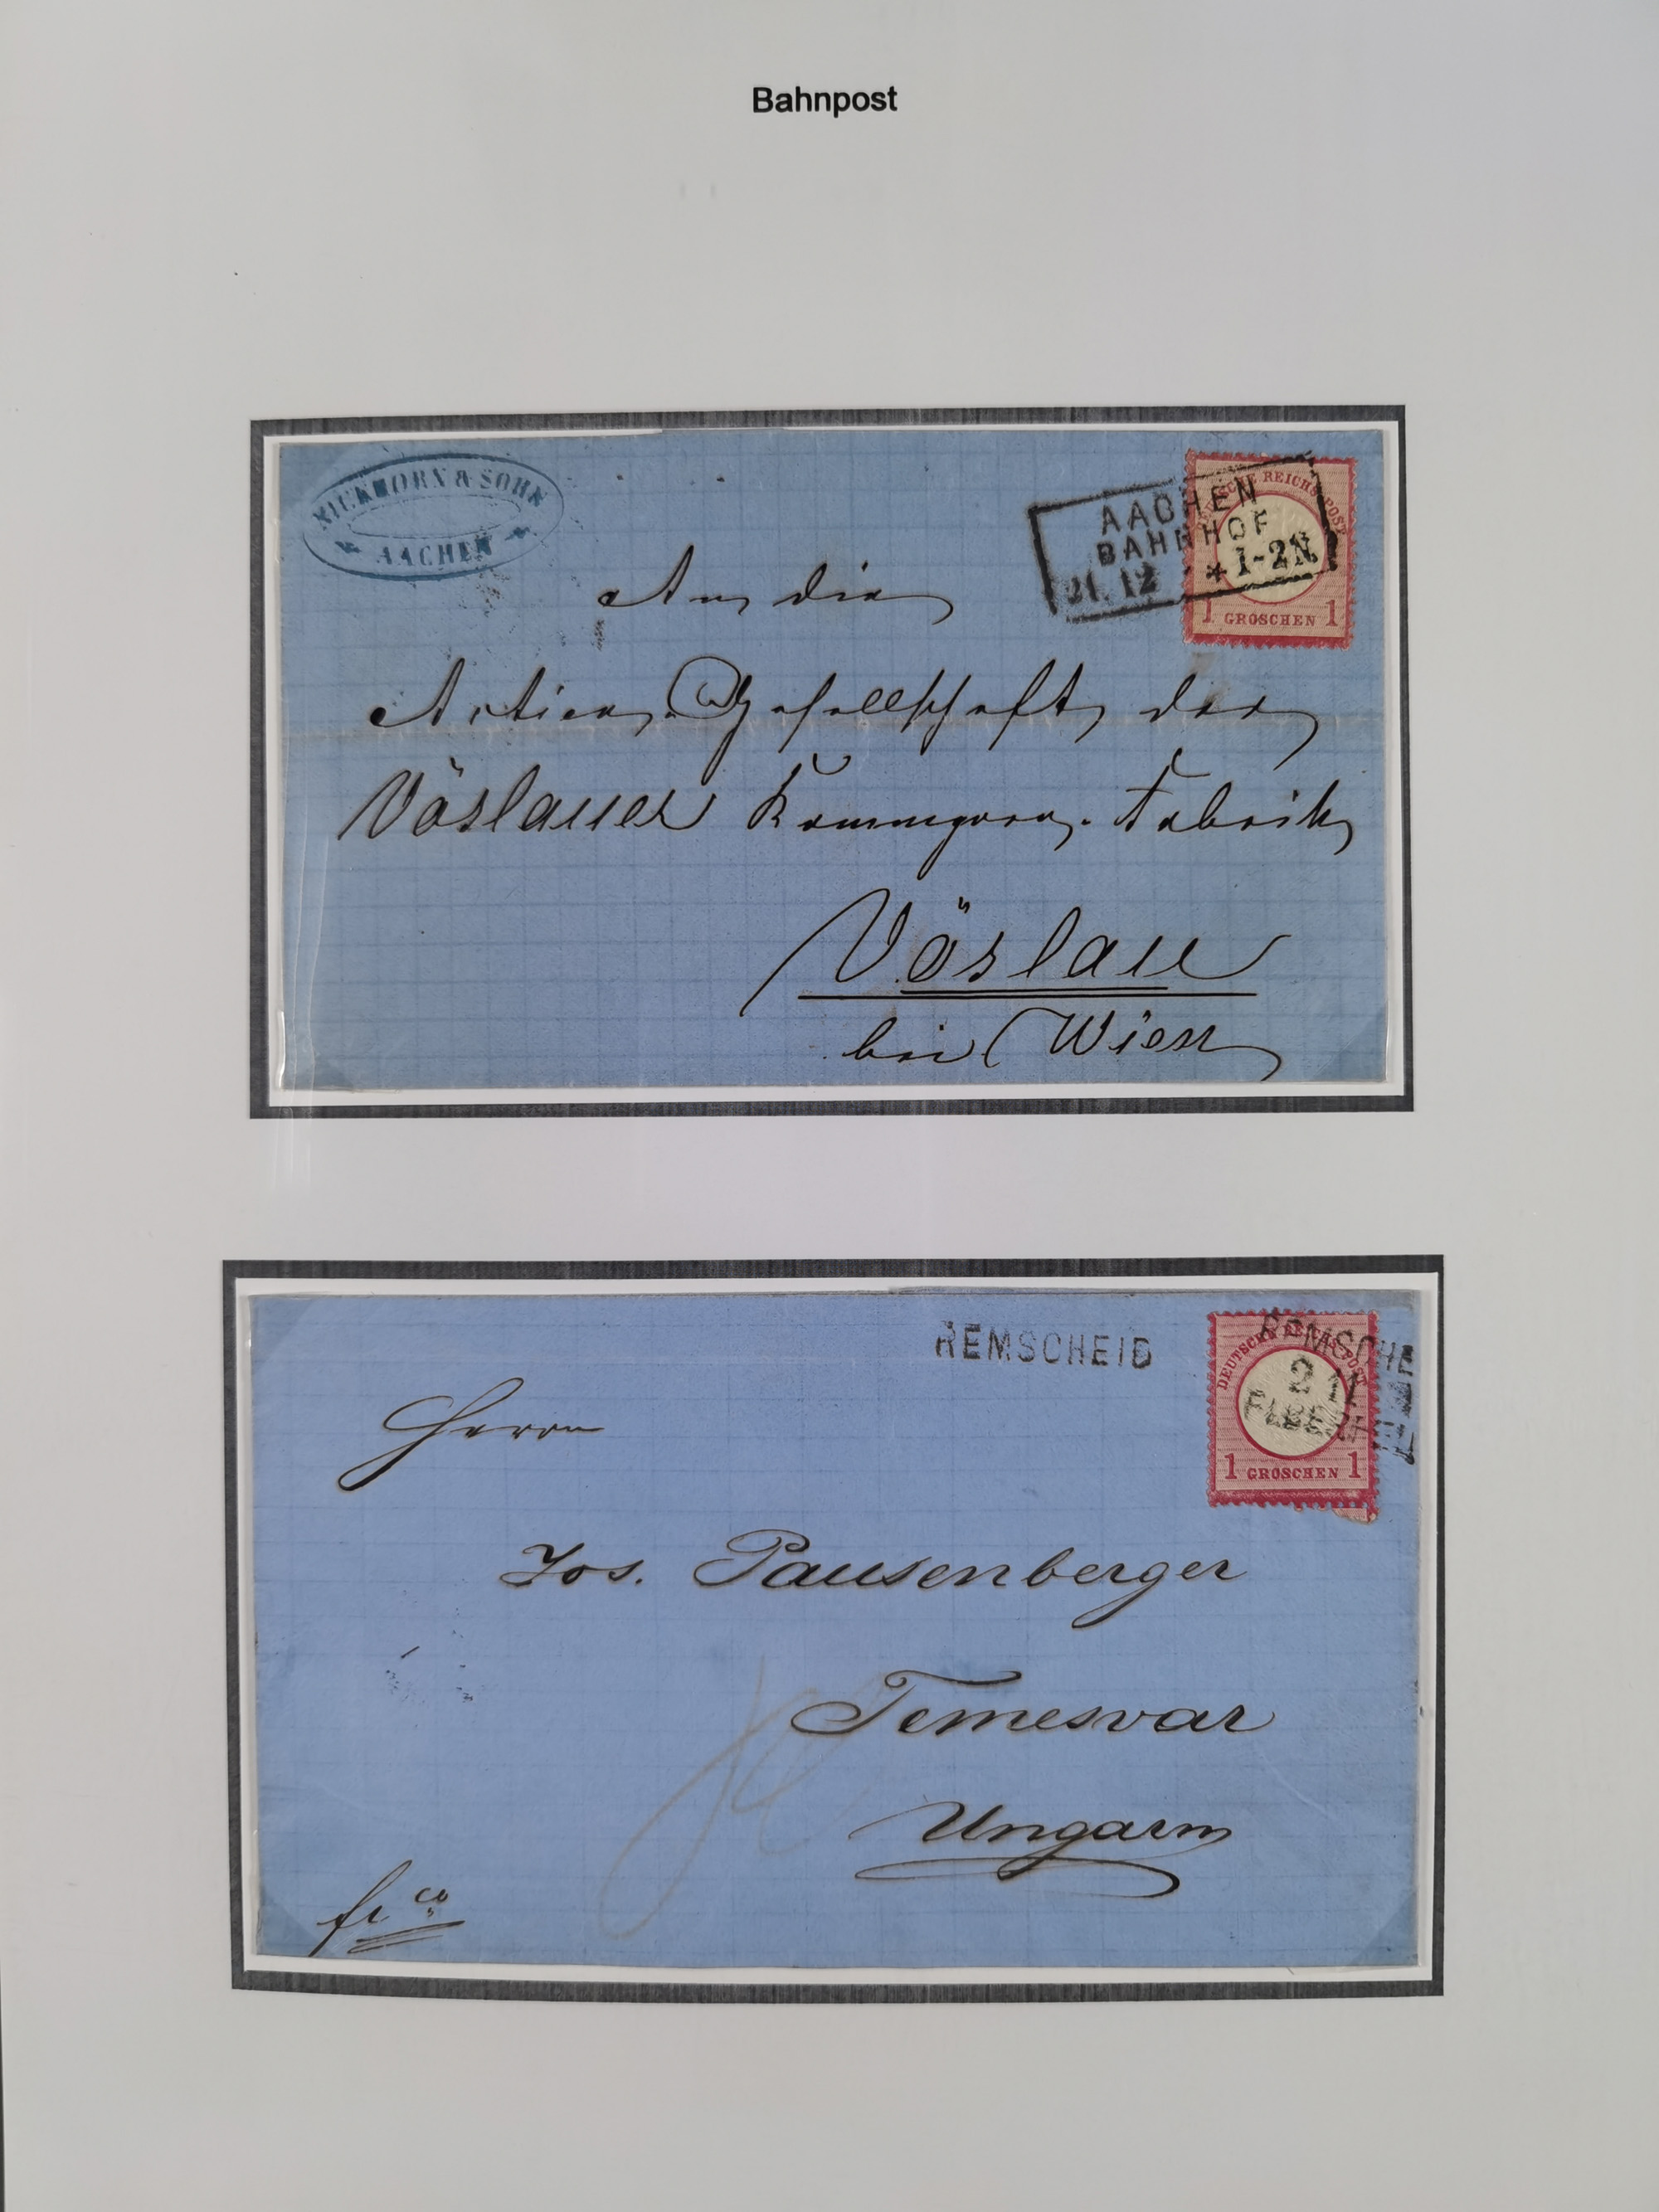 Bahnpost
& SOHN
AACHEN
AACHEN
BAHNHOF
21.12 * 1-2N.
DEUTSCHE REICHS-POST
1 GROSCHEN 1
An die
Actien-Gesellschaft der
Vöslauer Kammgarn-Fabrik
Vöslau
bei Wien
REMSCHEID
REMSCHE
2 11
ELBERFEL
DEUTSCHE REICHS-POST
1 GROSCHEN 1
Herrn
Jos. Pausenberger
Temesvar
Ungarn
frco